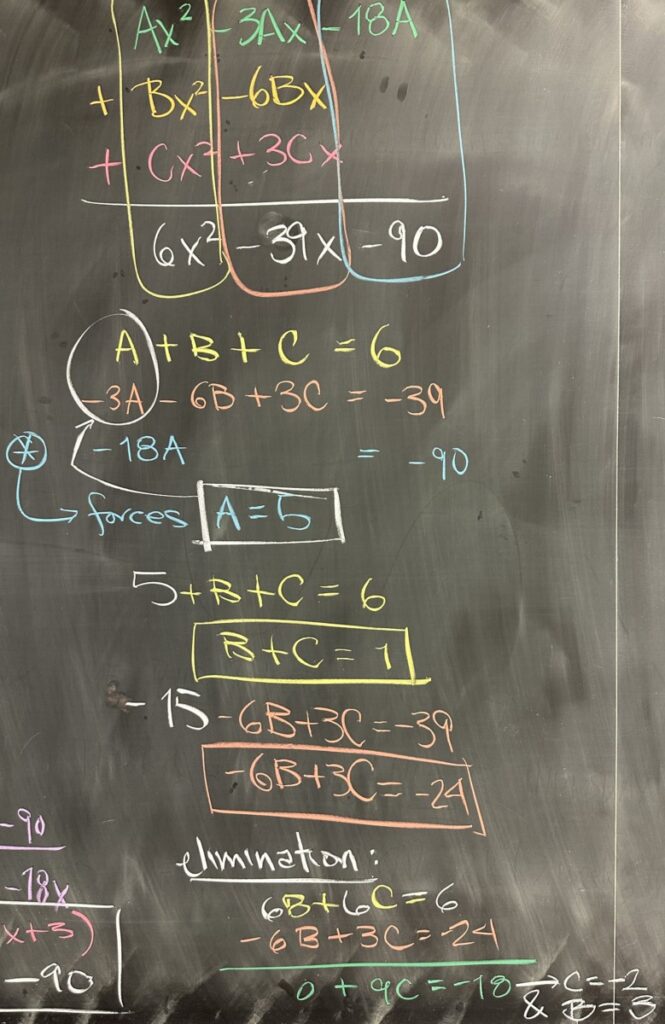 Ax² -3Ax -18A
+ Bx² -6Bx
+ Cx² +3Cx
6x² -39x -90
A + B + C = 6
-3A - 6B + 3C = -39
* -18A = -90
→ forces A = 5
5 + B + C = 6
B + C = 1
-15 -6B+3C=-39
-6B+3C=-24
elimination:
6B+6C=6
-6B+3C=-24
0 + 9C=-18 → C=-2
& B=3
-90
-18x
x+3)
-90